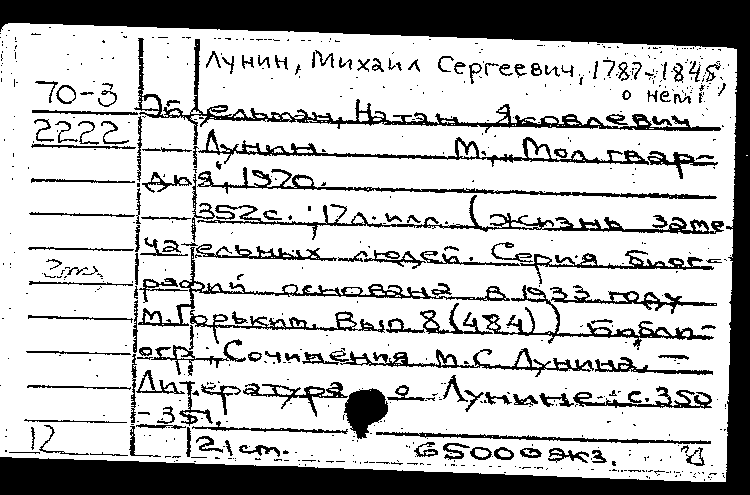 Лунин, Михаил Сергеевич, 1787-1845,
о нем!
70-3
2222
Эйдельман, Натан Яковлевич
Лунин. М., „Мол. гвар-
дия", 1970.
352 с.; 17 л. илл. (Жизнь заме-
чательных людей. Серия биог-
рафий основана в 1933 году
М. Горьким. Вып 8 (484)) Библи-
огр „Сочинения М.С Лунина, —
Литература о Лунине": с. 350
-351.
12
21 cm. 65000 экз.